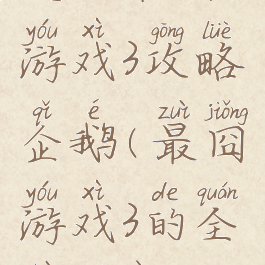 yóu xì gōng lüè
游戏3攻略
qǐ é zuì jiǒng
企鹅(最囧
yóu xì de quán
游戏3的全